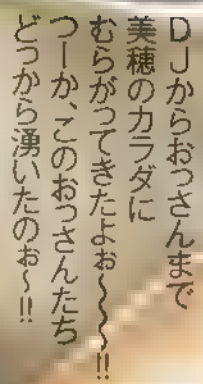 DJからおっさんまで
美穂のカラダに
むらがってきたよぉ〜〜〜!!
つーか、このおっさんたち
どっから湧いたのぉ〜!!